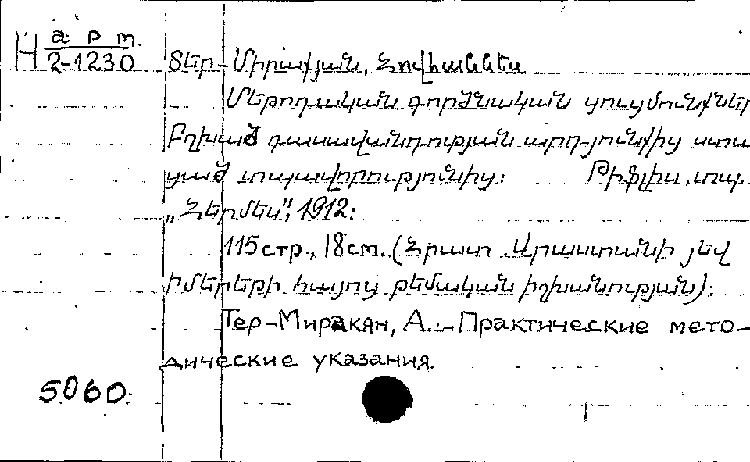 H а р т.
2-1230 Տեր-Միրաքյան, Հովհաննես
Մեթոդական գործնական ցուցմունքներ
բղխած դասավանդության արդյունքից ստա
ցած տպավորությունից: Թիֆլիս, տպ.
„Հերմես“, 1912:
115 стр., 18 см. (Հրատ Վրաստանի յեվ
Իմերեթի հայոց թեմական իշխանության):
Тер-Миракян, А. – Практические мето-
дические указания.
5060